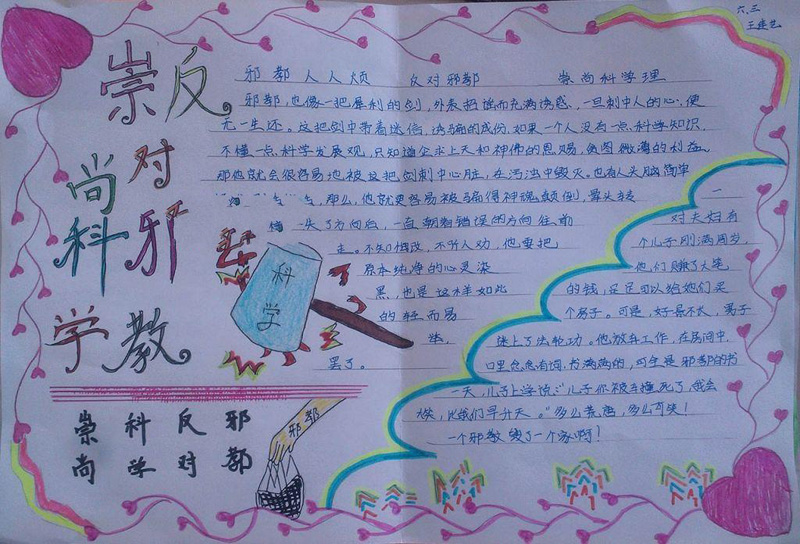 六.三
崇尚科学
反对邪教
邪教人人烦 反对邪教 崇尚科学理
邪教,也像一把犀利的剑,外表把谣而充满诱惑,一旦刺中人的心,便
无一生还。这把剑中带着迷信、诱骗的成份,如果一个人没有一点科学知识,
不懂一点科学发展观,只知道企求上天和神佛的恩赐,贪图微薄的利益。
那他就会很容易地被这把剑刺中心脏,在污浊中毁灭,也有人头脑简单
那么,他就更容易被骗得神魂颠倒,晕头转
失了方向后,一直朝着错误的方向往前
走。不知悔改,不听人劝,他要把
原本纯净的心灵染
黑,也是这样如此
的轻而易
罢了。
科学
一
对夫妇有
个儿子刚满周岁,
他们赚了大笔
的钱,足足可以给她们买
个房子。可是,好景不长,妻子
迷上了法轮功。他放车工作,在房间中,
口里念念有词,书满满的,可全是邪教的书
一天,儿子上学说:"儿子你被车撞死了,我会
快,比我们早升天。"多么荒唐,多么可笑!
一个邪教毁了一个家啊!
崇尚 科学 反对 邪教
邪教